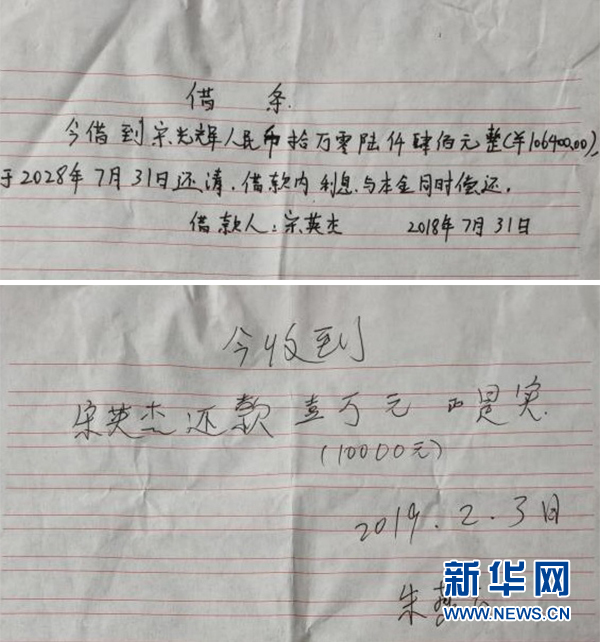 借条
今借到宋光辉人民币拾万零陆仟肆佰元整(¥106400.00),
于2028年7月31日还清.借款内利息.与本金同时偿还.
借款人:宋英杰 2018年7月31日
今收到
宋英杰还款壹万元 是实.
(10000元)
2019.2.3日
朱
新华网
WWW.NEWS.CN